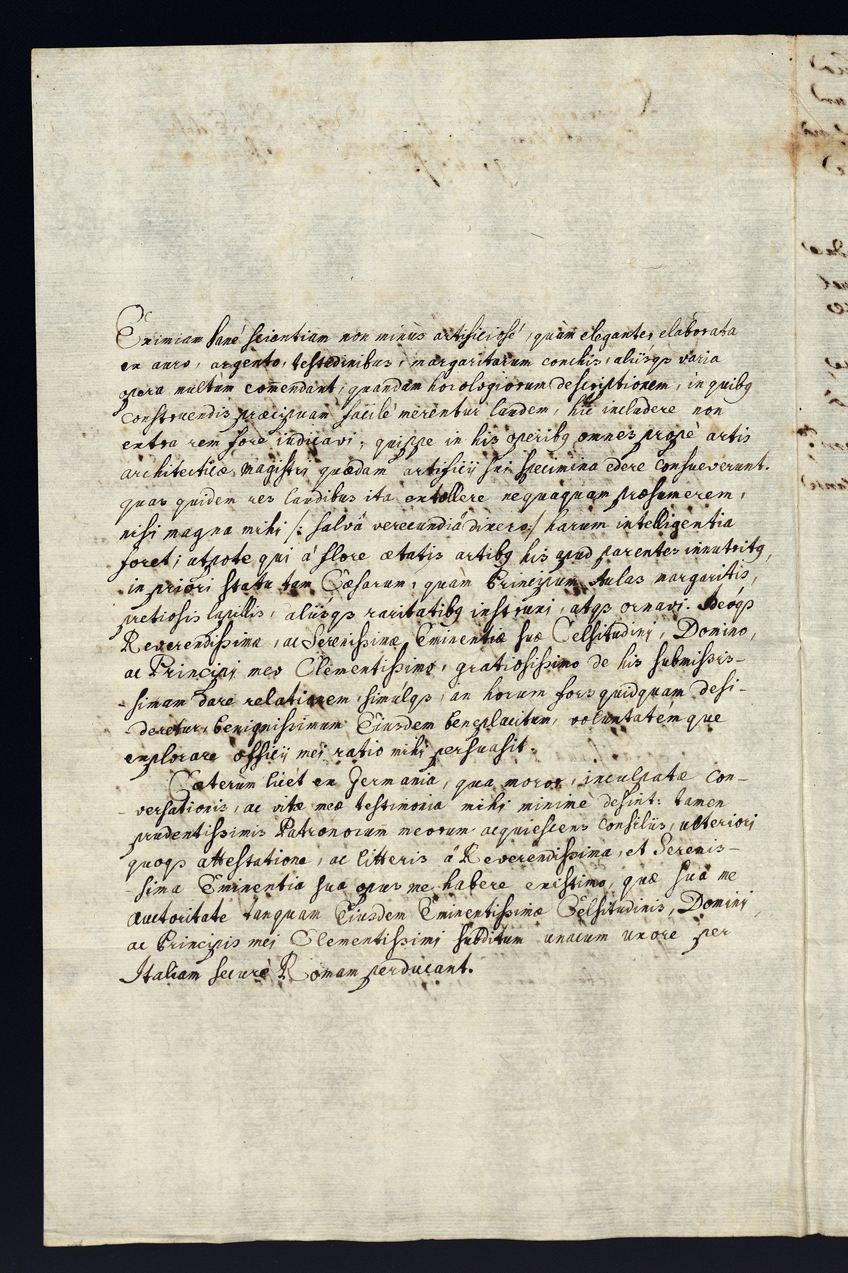 Eximiam sanè scientiam non minùs artificiosè, quàm eleganter elaborata
ex auro, argento, testudinibus, margaritarum conchis, aliisqȝ varia
opera multùm com̄endant, quandam horologiorum descriptionem, in quibꝰ
construendis præcipuam facilè merentur laudem, hic includere non
extra rem fore iudicavi; quippe in his operibꝰ omnes propè artis
architecticæ Magistri quædam artificij sui specimina edere consueverunt.
quas quidem res laudibus ita extollere nequaquam præsumerem,
nisi magna mihi /: salvâ verecundiâ dixero:/ harum intelligentia
foret; utpote qui á flore ætatis artibꝰ his apud parentes innutritꝰ,
in priori statu tam Cæsarum, quam Principum Aulas margaritis,
pretiosis lapillis, aliisqȝ raritatibꝰ instruxi, atqȝ ornavi. Ideoqȝ
Reverendissimæ, ac Serenissimæ Eminentiæ suæ Celsitudini, Domino,
ac Principi meo Clementissimo, gratiosissimo de his submissis-
simam dare relationem, simulqȝ, an horum fors quidquam desi-
deretur, benignissimum Eiusdem beneplacitum, voluntatémque
explorare officij mei ratio mihi persuasit.
Cæterum licèt ex Germania, qua moror, inculpatæ con-
versationis, ac vitæ meæ testimonia mihi minimè desint: tamen
prudentissimis Patronorum meorum acquiescens consiliis, ulteriori
quoqȝ attestatione, ac litteris á Reverendissima, et Serenis-
sima Eminentia sua opus me habere existimo, quæ sua me
auctoritate tanquam Eiusdem Eminentissimæ Celsitudinis, Domini,
ac Principis mei Clementissimi subditum unacum uxore per
Italiam securè Romam perducant.